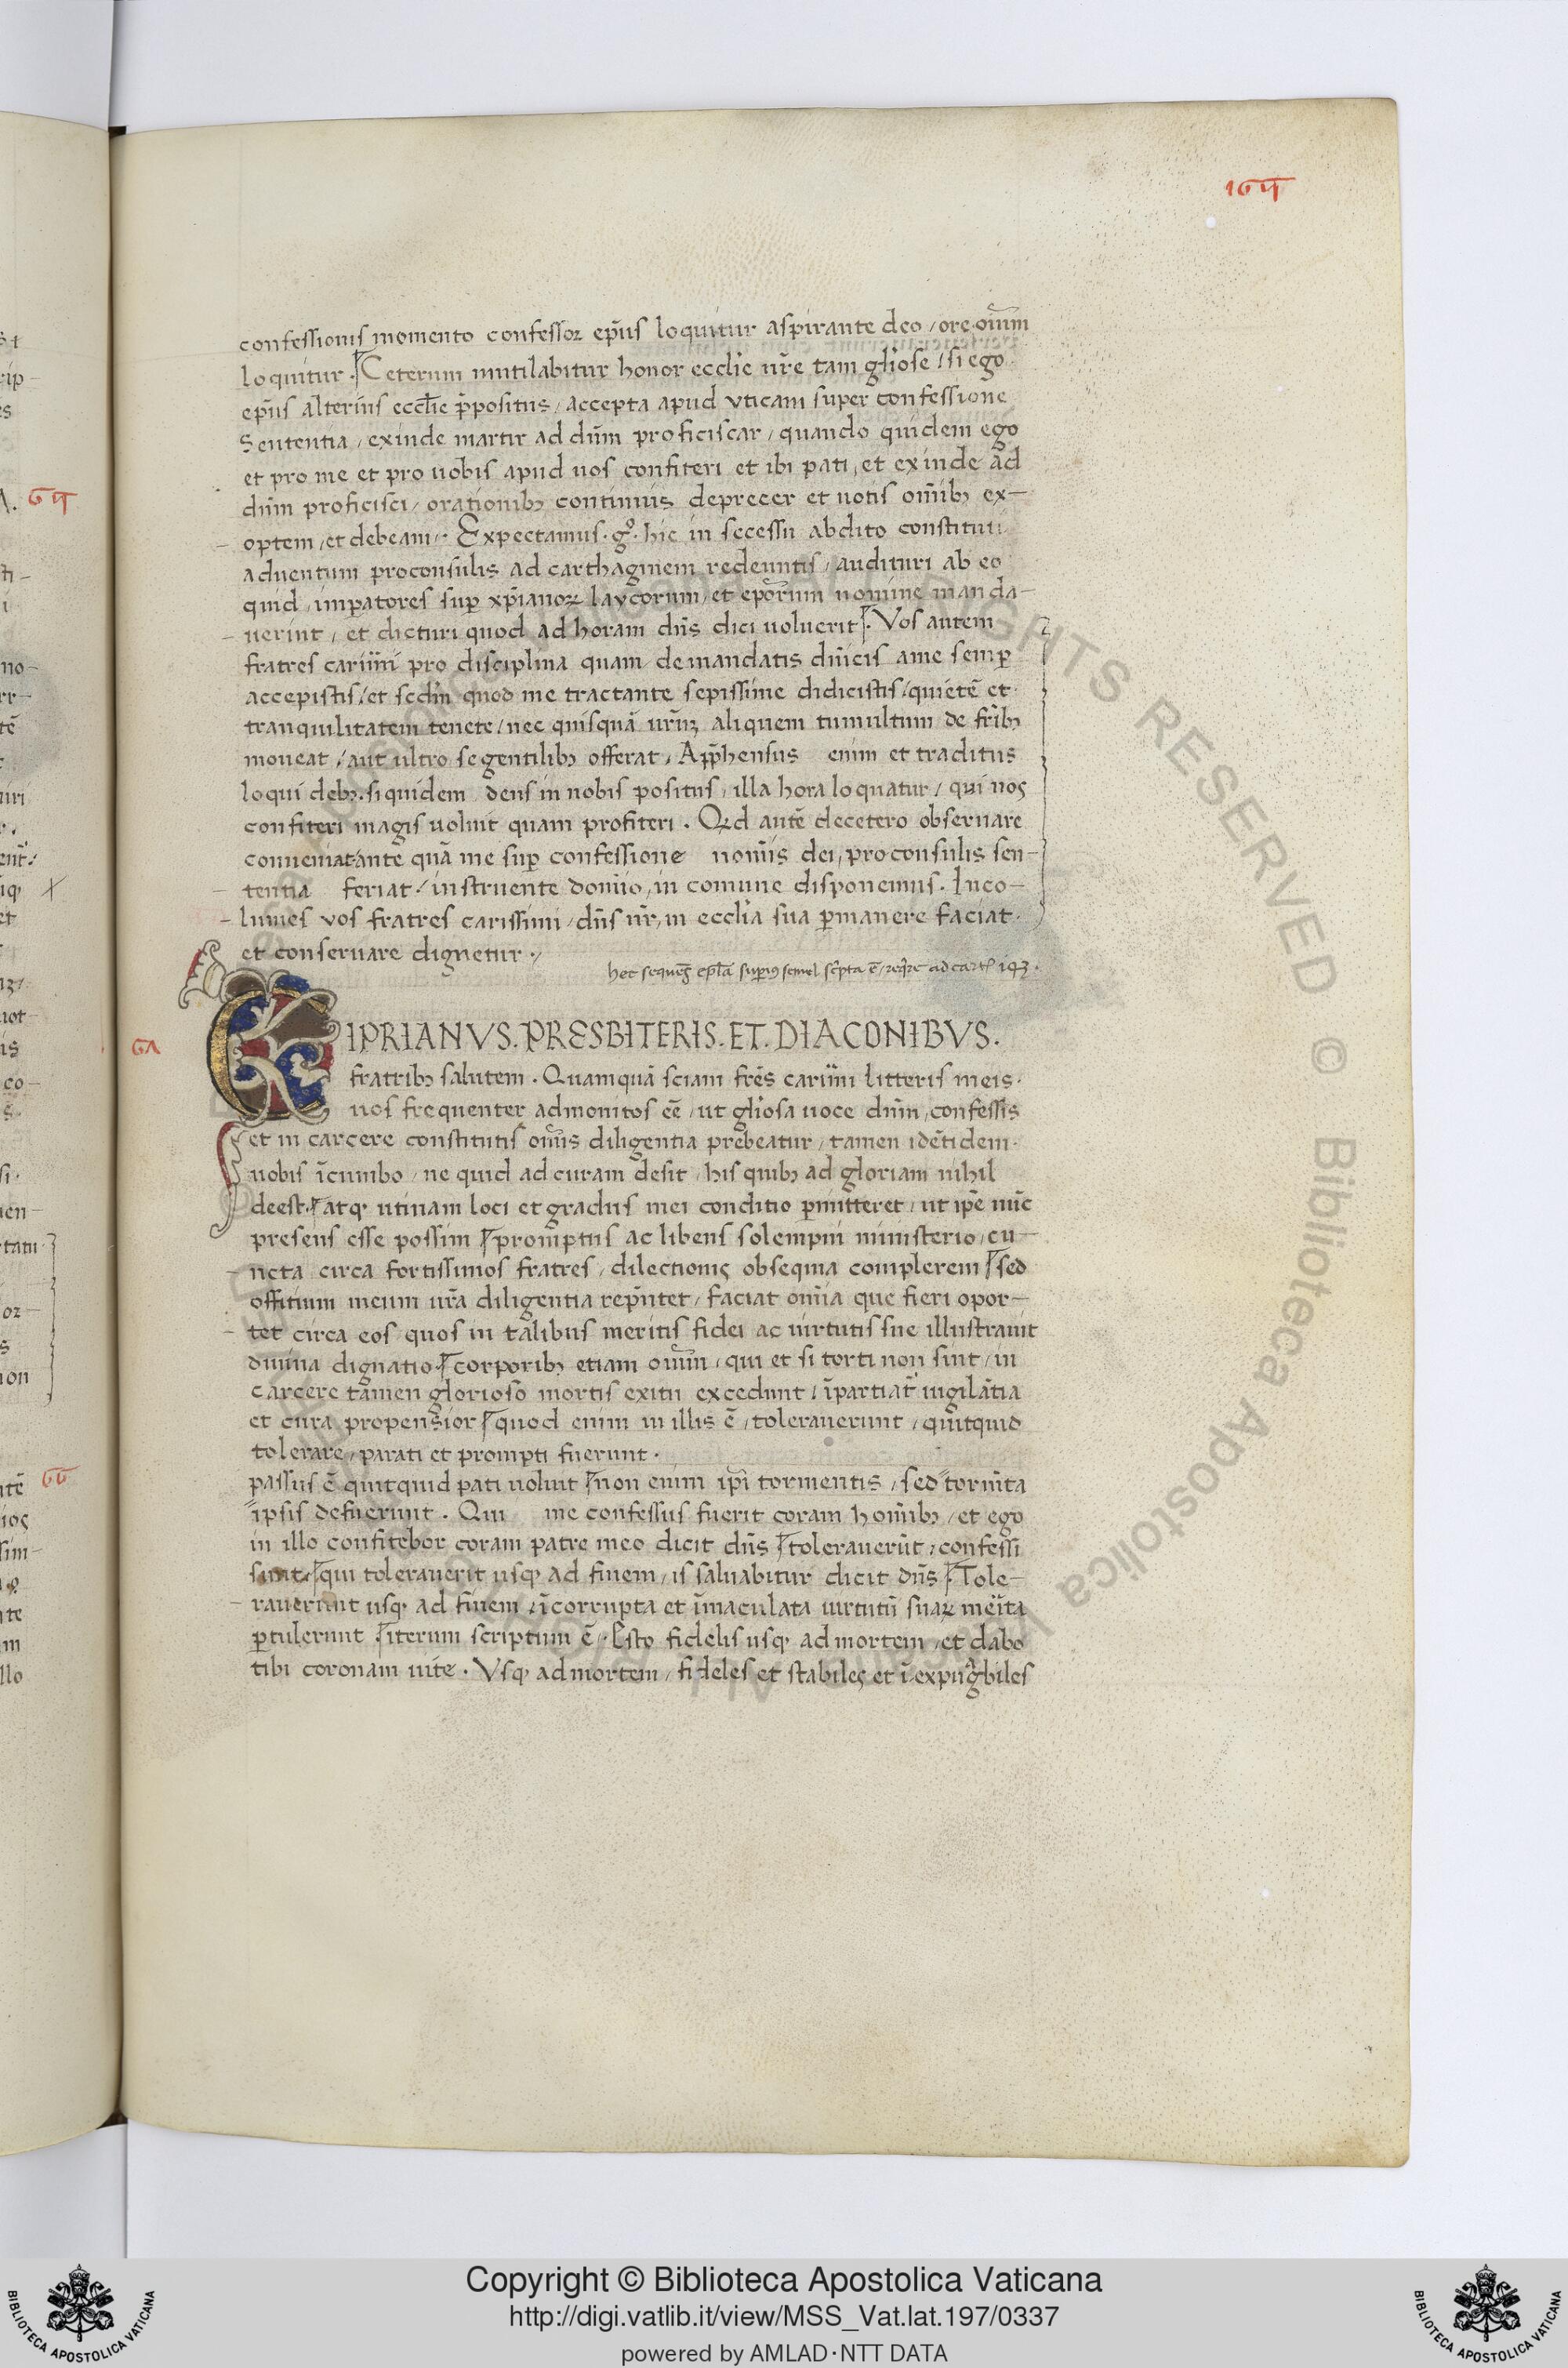 164
confessionis momento confessor ep̄us loquitur aspirante deo / ore om̄ium
loquitur. Ceterum mutilabitur honor eccl̄ie ūre tam gl̄iose / si ego
ep̄us alterius eccl̄ie p̄positus / accepta apud vticam super confessione
Sententia / exinde martir ad dūm proficiscar / quando quidem ego
et pro me et pro uobis apud uos confiteri et ibi pati, et exinde ad
dūm proficisci / orationibꝫ continuis deprecer et uotis om̄ibꝫ ex-
optem / et debeam. Expectamus. gͦ. hic in secessu abdito constituti
aduentum proconsulis ad carthaginem redeuntis / audituri ab eo
quid imp̱atores sup̱ xp̄ianoꝝ laycorum / et ep̄orum nomine manda-
uerint / et dicturi quod ad horam dn̄s dici uoluerit. Vos autem
fratres carim̄i pro disciplina quam de mandatis dn̄icis a me semp̱
accepistis / et scd̄m quod me tractante sepissime didicistis / quietē et
tranquilitatem tenete / nec quisquā ur̄ꝝ aliquem tumultum de fr̄ibꝫ
moueat / aut ultro se gentilibꝫ offerat. App̄hensus enim et traditus
loqui debꝫ. siquidem deus in nobis positus, illa hora loquatur / qui nos
confiteri magis uoluit quam profiteri. Qd autē decetero obseruare
conueniat ante quā me sup̱ confessione nom̄is dei, proconsulis sen-
tentia feriat / instruente domīo, in comune disponemus. Inco-
lumes vos fratres carissimi / dn̄s nr̄ in eccl̄ia sua p̱manere faciat
et conseruare dignetur.
hec sequēs epl̄a sup̱ius semel sc̄pta ē / req̄re ad cart. 193.
6A
CIPRIANVS. PRESBITERIS. ET. DIACONIBVS.
fratribꝫ salutem. Quamquā sciam frēs carim̄i litteris meis
uos frequenter admonitos eē / ut gl̄iosa uoce dūm confessis
et in carcere constitutis om̄is diligentia prebeatur / tamen idētidem
uobis īcumbo / ne quid ad curam desit / his quibꝫ ad gloriam nihil
deest. atqꝫ utinam loci et gradus mei conditio p̱mitteret / ut ip̄e nūc
presens esse possim promptus ac libens solempni ministerio / cu-
ncta circa fortissimos fratres / dilectionis obsequia complerem sed
offitium meum ur̄a diligentia rep̄ntet / faciat om̄ia que fieri opor-
tet circa eos quos in talibus meritis fidei ac uirtutis sue illustrauit
diuina dignatio corporibꝫ etiam om̄ium / qui et si torti non sint / in
carcere tamen glorioso mortis exitu excedunt / īpartiat̄ uigilātia
et cura propensior quod enim in illis ē / tolerauerunt / quitquid
tolerare / parati et prompti fuerunt.
passus ē quitquid pati uoluit non enim ip̄i tormentis / sed torm̄ta
ipsis defuerunt. Qui me confessus fuerit coram hom̄ibꝫ / et ego
in illo confitebor coram patre meo dicit dn̄s tolerauerūt / confessi
sunt. qui tolerauerit usqꝫ ad finem / is saluabitur dicit dn̄s Tole-
rauerunt usqꝫ ad finem / īcorrupta et īmaculata uirtutū suaꝝ merita
p̱tulerunt iterum scriptum ē. Esto fidelis usqꝫ ad mortem / et dabo
tibi coronam uite. Vsqꝫ ad mortem / fideles et stabiles et īexpugabiles
64
66
© Biblioteca Apostolica Vaticana ALL RIGHTS RESERVED
Copyright © Biblioteca Apostolica Vaticana
http://digi.vatlib.it/view/MSS_Vat.lat.197/0337
powered by AMLAD·NTT DATA
BIBLIOTECA APOSTOLICA VATICANA
BIBLIOTECA APOSTOLICA VATICANA